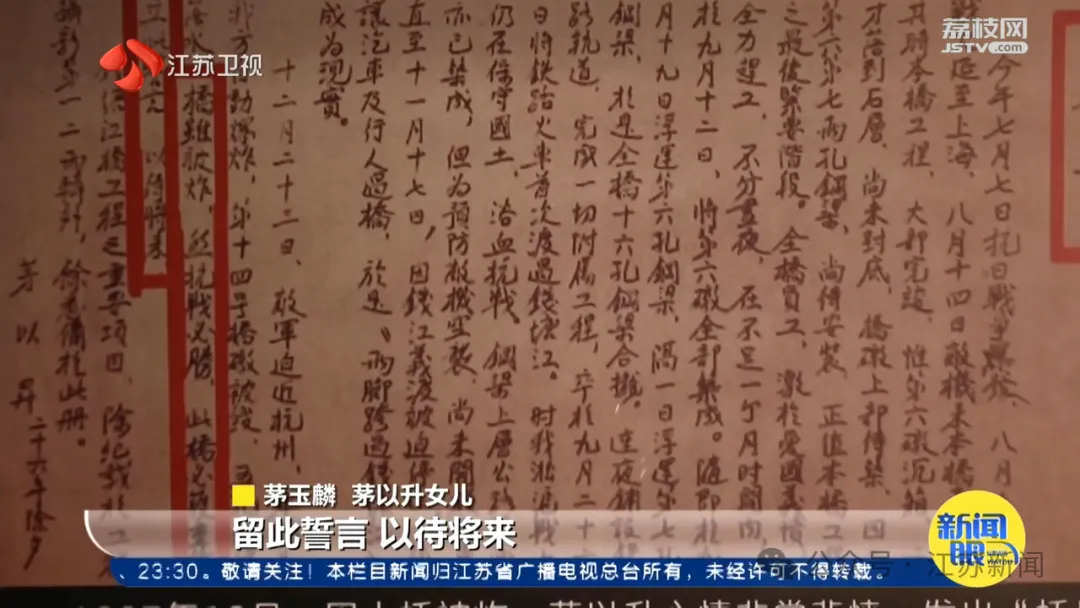 荔枝网
JSTV.com
江苏卫视
今年七月七日抗日戰爭爆發，八月
延至上海，八月十四日敵機來本橋
其時本橋工程，大部完竣，惟第六礅沉箱
才落到石層，尚未封底，橋礅上部待築，因
第六第七兩孔鋼梁，尚待安裝，正值本橋工
之最後緊要階段。全橋員工，激於愛國義憤
全力趕工，不分晝夜，在不足一个月時間內，
於九月十二日，將第六礅全部築成。隨即於
月十九日浮運第六孔鋼梁，隔一日浮運第七
鋼梁，於是全橋十六孔鋼梁合攏。連夜鋪設
路軌道，完成一切附屬工程，卒於九月二十
日將鐵路火車首次渡過錢塘江。時我淞滬戰
仍在保守國土，浴血抗戰。鋼梁上層公路
亦已築成，但為預防敵機空襲，尚未開
直至十一月十七日，因錢江義渡被迫停
讓汽車及行人過橋，於是《兩腳跨過錢
成為現實。
十二月二十三日，敵軍迫近杭州，
我方動爆炸，第十四号橋礅被毀，五
落水。橋雖被炸，然抗戰必勝，此橋必須重
立此誓言，以待將來
江橋工程之重要項目，除紀載於工
橋影第一二兩輯外，餘悉備於此冊。
茅以昇 二十六年除夕
茅玉麟 茅以升女儿
留此誓言 以待将来
新闻眼
、23:30。敬请关注！本栏目新闻归江苏省广播电视总台所有，未经许可不得转载。
公众号·江苏新闻